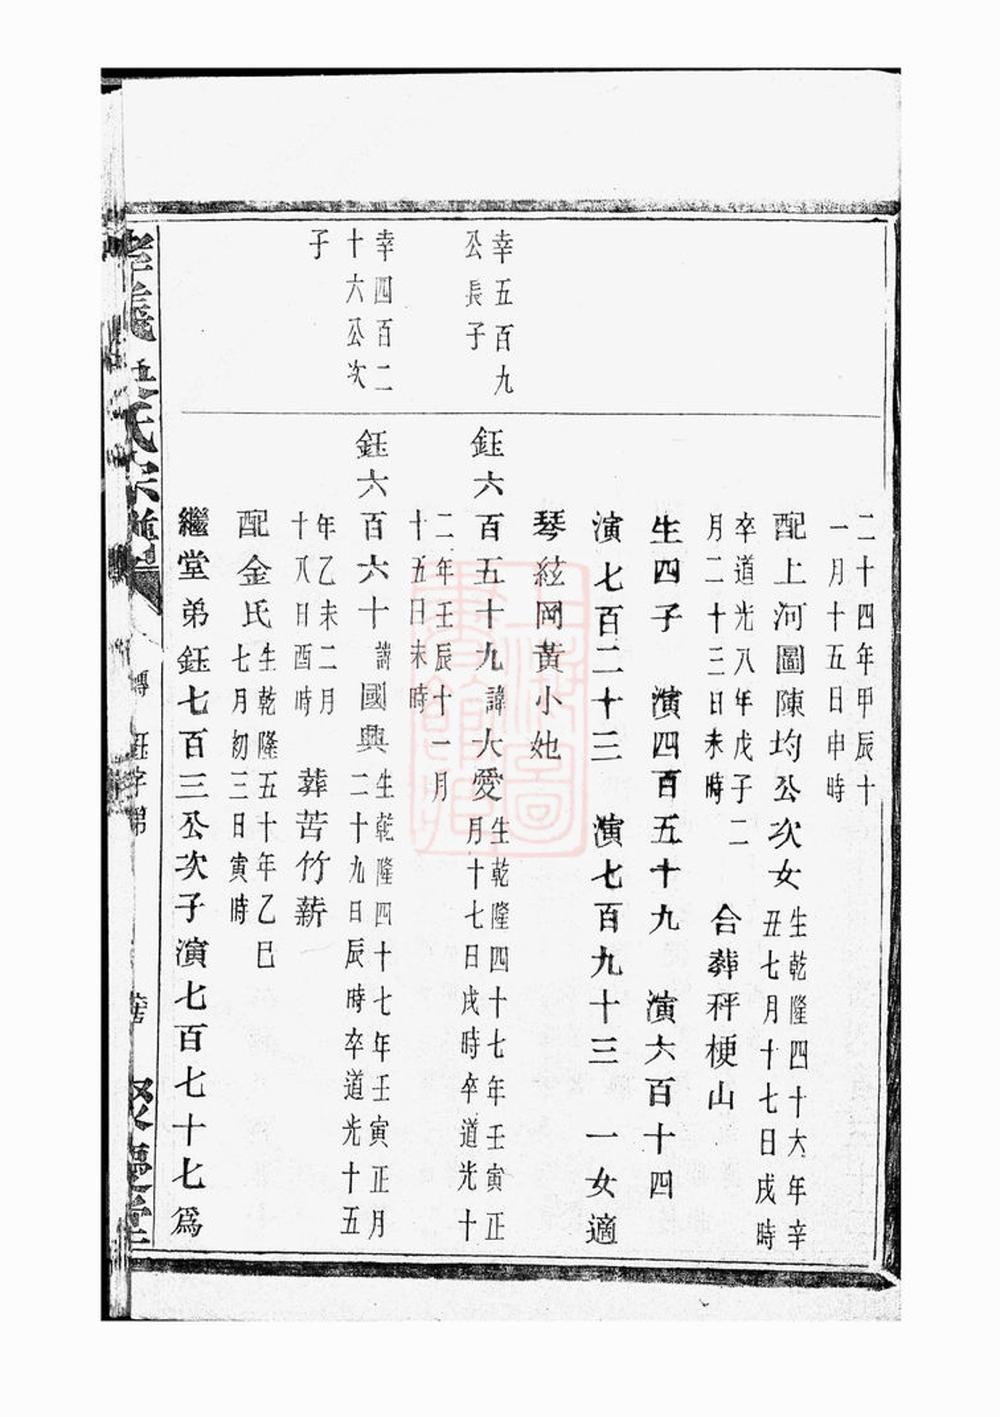 二十四年甲辰十
一月十五日申時
配上河圖陳均公次女生乾隆四十六年辛
丑七月十七日戌時
卒道光八年戊子二
月二十三日未時
合葬秤梗山
生四子 演四百五十九 演六百十四
演七百二十三 演七百九十三 一女適
琴絃岡黃小她
幸五百九
公長子
鈺六百五十九諱大愛生乾隆四十七年壬寅正
月十七日戌時卒道光十
二年壬辰十一月
十五日未時
幸四百二
十六公次
子
鈺六百六十諱國興生乾隆四十七年壬寅正月
二十九日辰時卒道光十五
年乙未二月
十八日酉時
葬苦竹薪
配金氏生乾隆五十年乙巳
七月初三日寅時
繼堂弟鈺七百三公次子演七百七十七爲
吳氏宗譜
聚慶堂